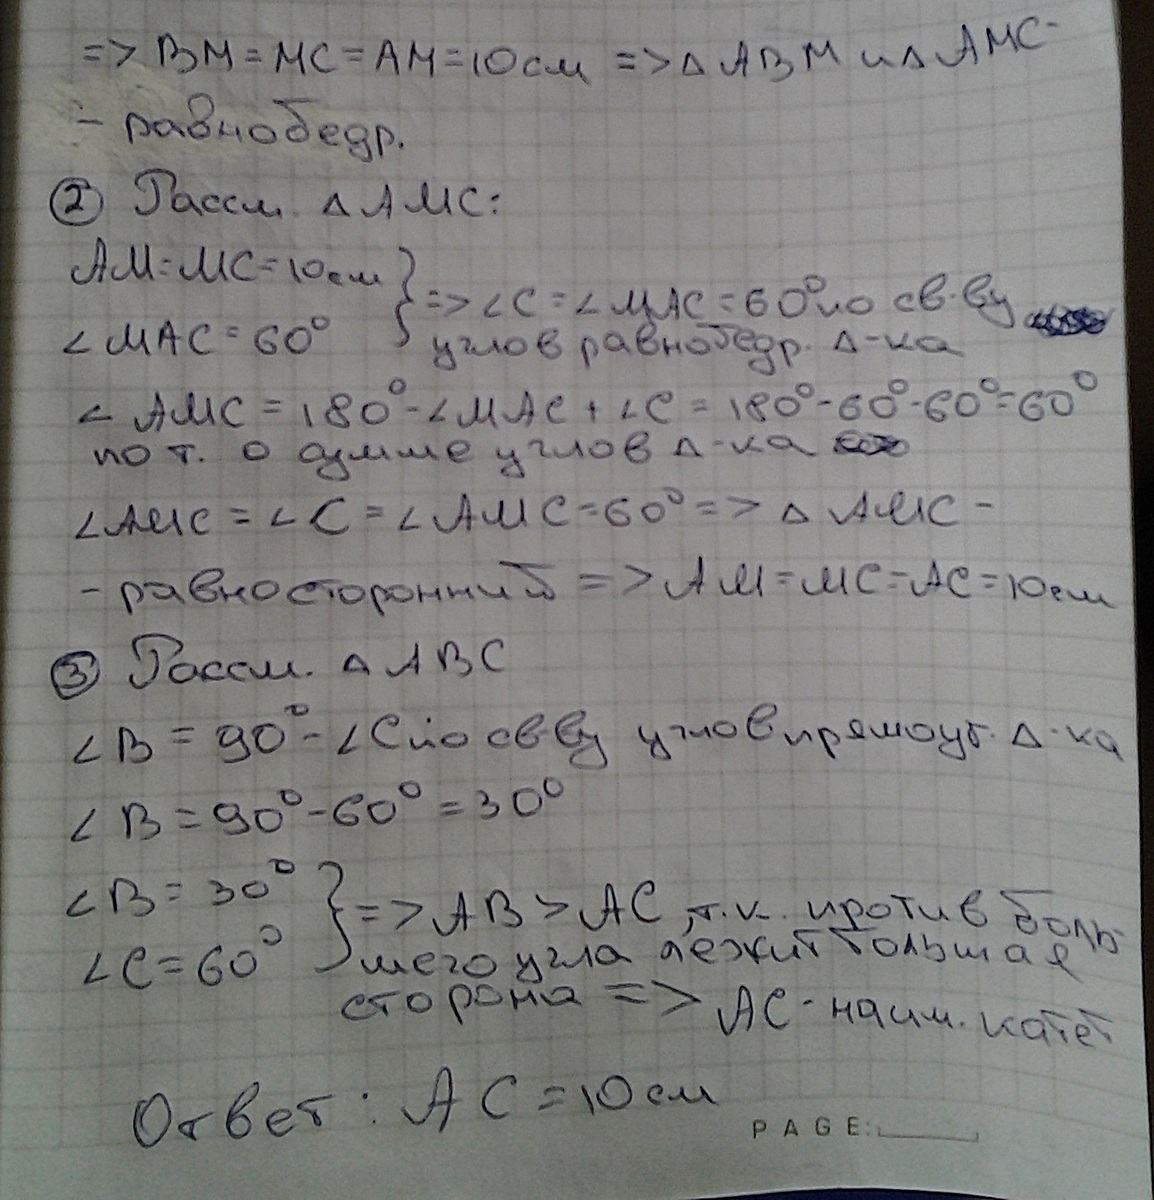 => BM = MC = AM = 10 см => △ ABM и △ AMC -
- равнобедр.
② Рассм. △ AMC:
AM = MC = 10 см } => ∠C = ∠MAC = 60° по св-ву
∠MAC = 60° углов равнобедр. △-ка
∠AMC = 180° - ∠MAC + ∠C = 180° - 60° - 60° = 60°
по т. о сумме углов △-ка
∠AMC = ∠C = ∠AMC = 60° => △ AMC -
- равносторонний => AM = MC = AC = 10 см
③ Рассм. △ ABC
∠B = 90° - ∠C по св-ву углов прямоуг. △-ка
∠B = 90° - 60° = 30°
∠B = 30° } => AB > AC, т.к. против боль-
∠C = 60° шего угла лежит большая
сторона => AC - наим. катет
Ответ: AC = 10 см
PAGE: